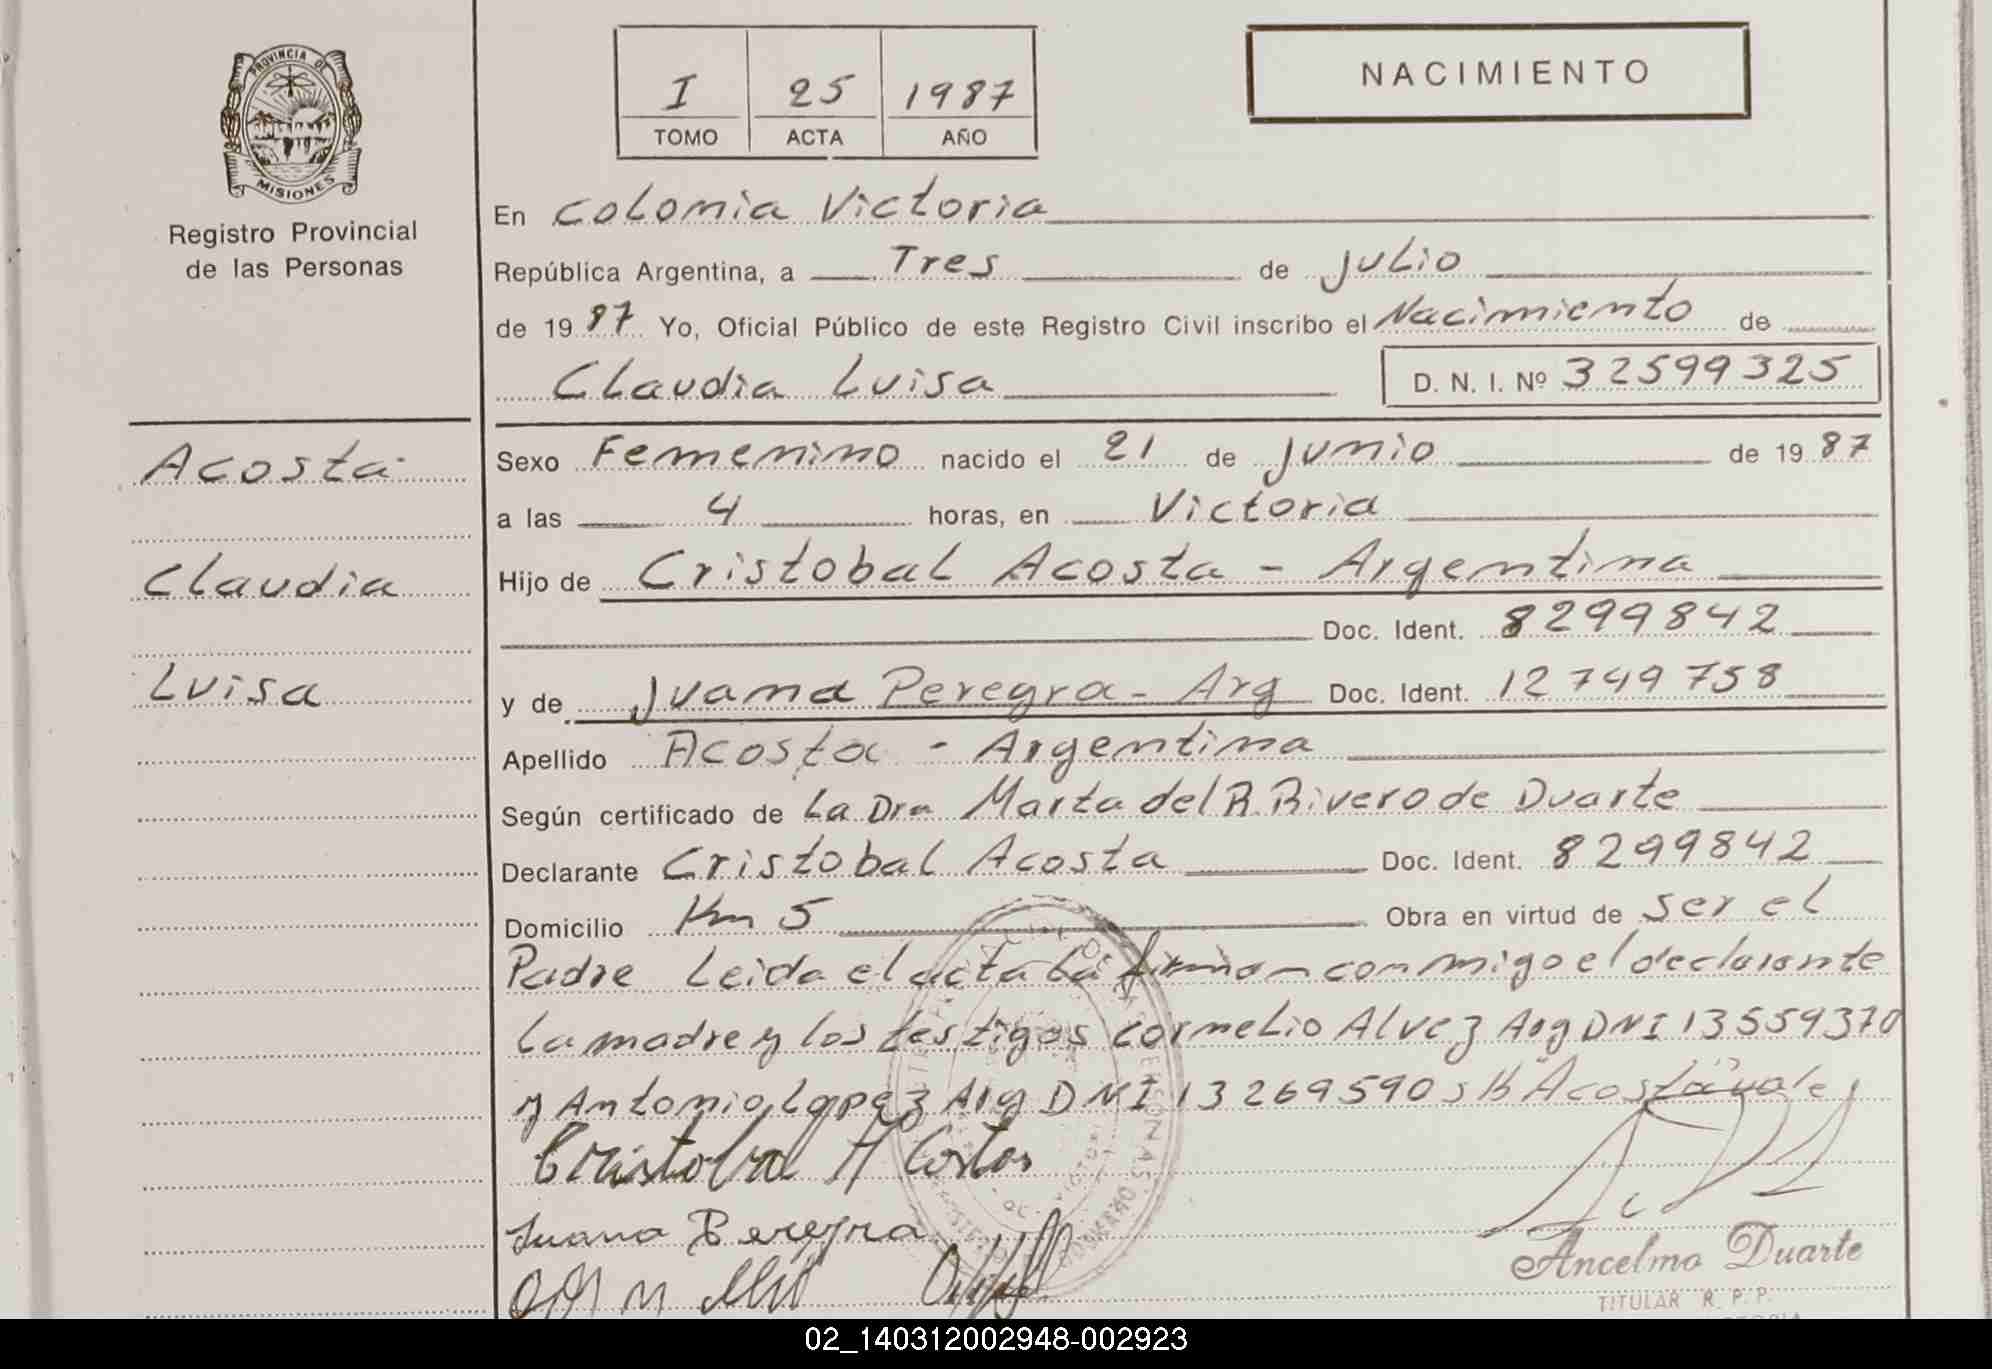 PROVINCIA DE
MISIONES
Registro Provincial
de las Personas
I 25 1987
TOMO ACTA AÑO
NACIMIENTO
En Colonia Victoria
República Argentina, a Tres de Julio
de 1987 Yo, Oficial Público de este Registro Civil inscribo el Nacimiento de
Claudia Luisa D. N. I. Nº 32599325
Acosta
Claudia
Luisa
Sexo Femenino nacido el 21 de Junio de 1987
a las 4 horas, en Victoria
Hijo de Cristobal Acosta - Argentina
Doc. Ident. 8299842
y de Juana Peregra - Arg Doc. Ident. 12749758
Apellido Acosta - Argentina
Según certificado de La Dra Marta del R. Rivero de Duarte
Declarante Cristobal Acosta Doc. Ident. 8299842
Domicilio Km 5 Obra en virtud de ser el
Padre Leida el acta la firman conmigo el declarante
la madre y los testigos Cornelio Alvez Arg DNI 13559370
y Antonio Lopez Arg DNI 13269590 Acosta vale
Cristobal A Costa
Juana Peregra
Ancelmo Duarte
TITULAR R. P. P.
02_140312002948-002923